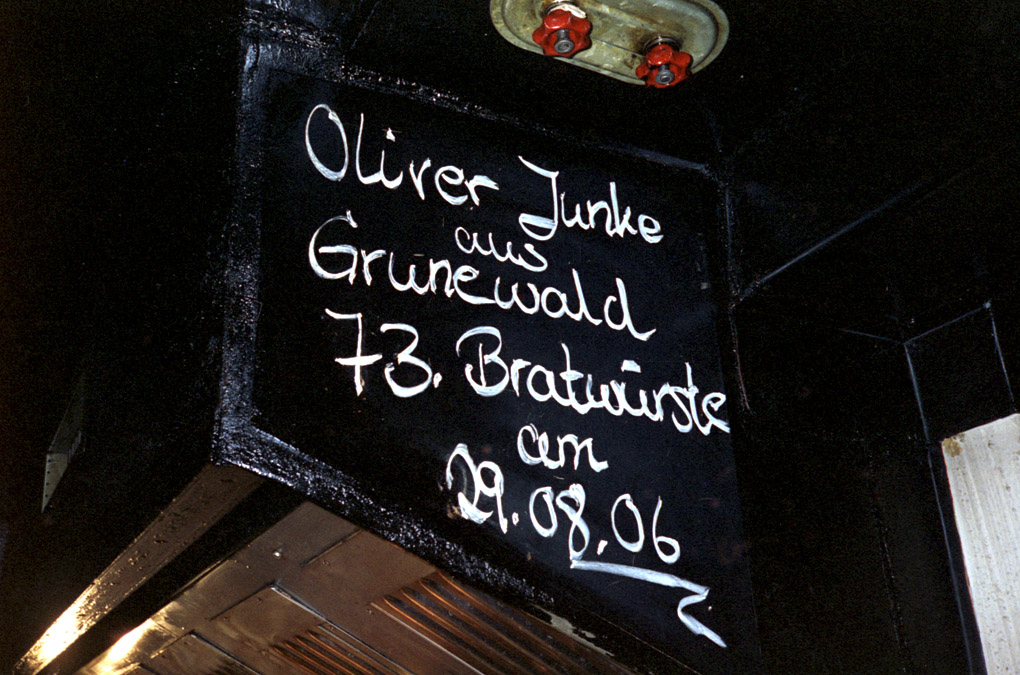 Oliver Junke
aus
Grunewald
73. Bratwürste
am
29.08.06